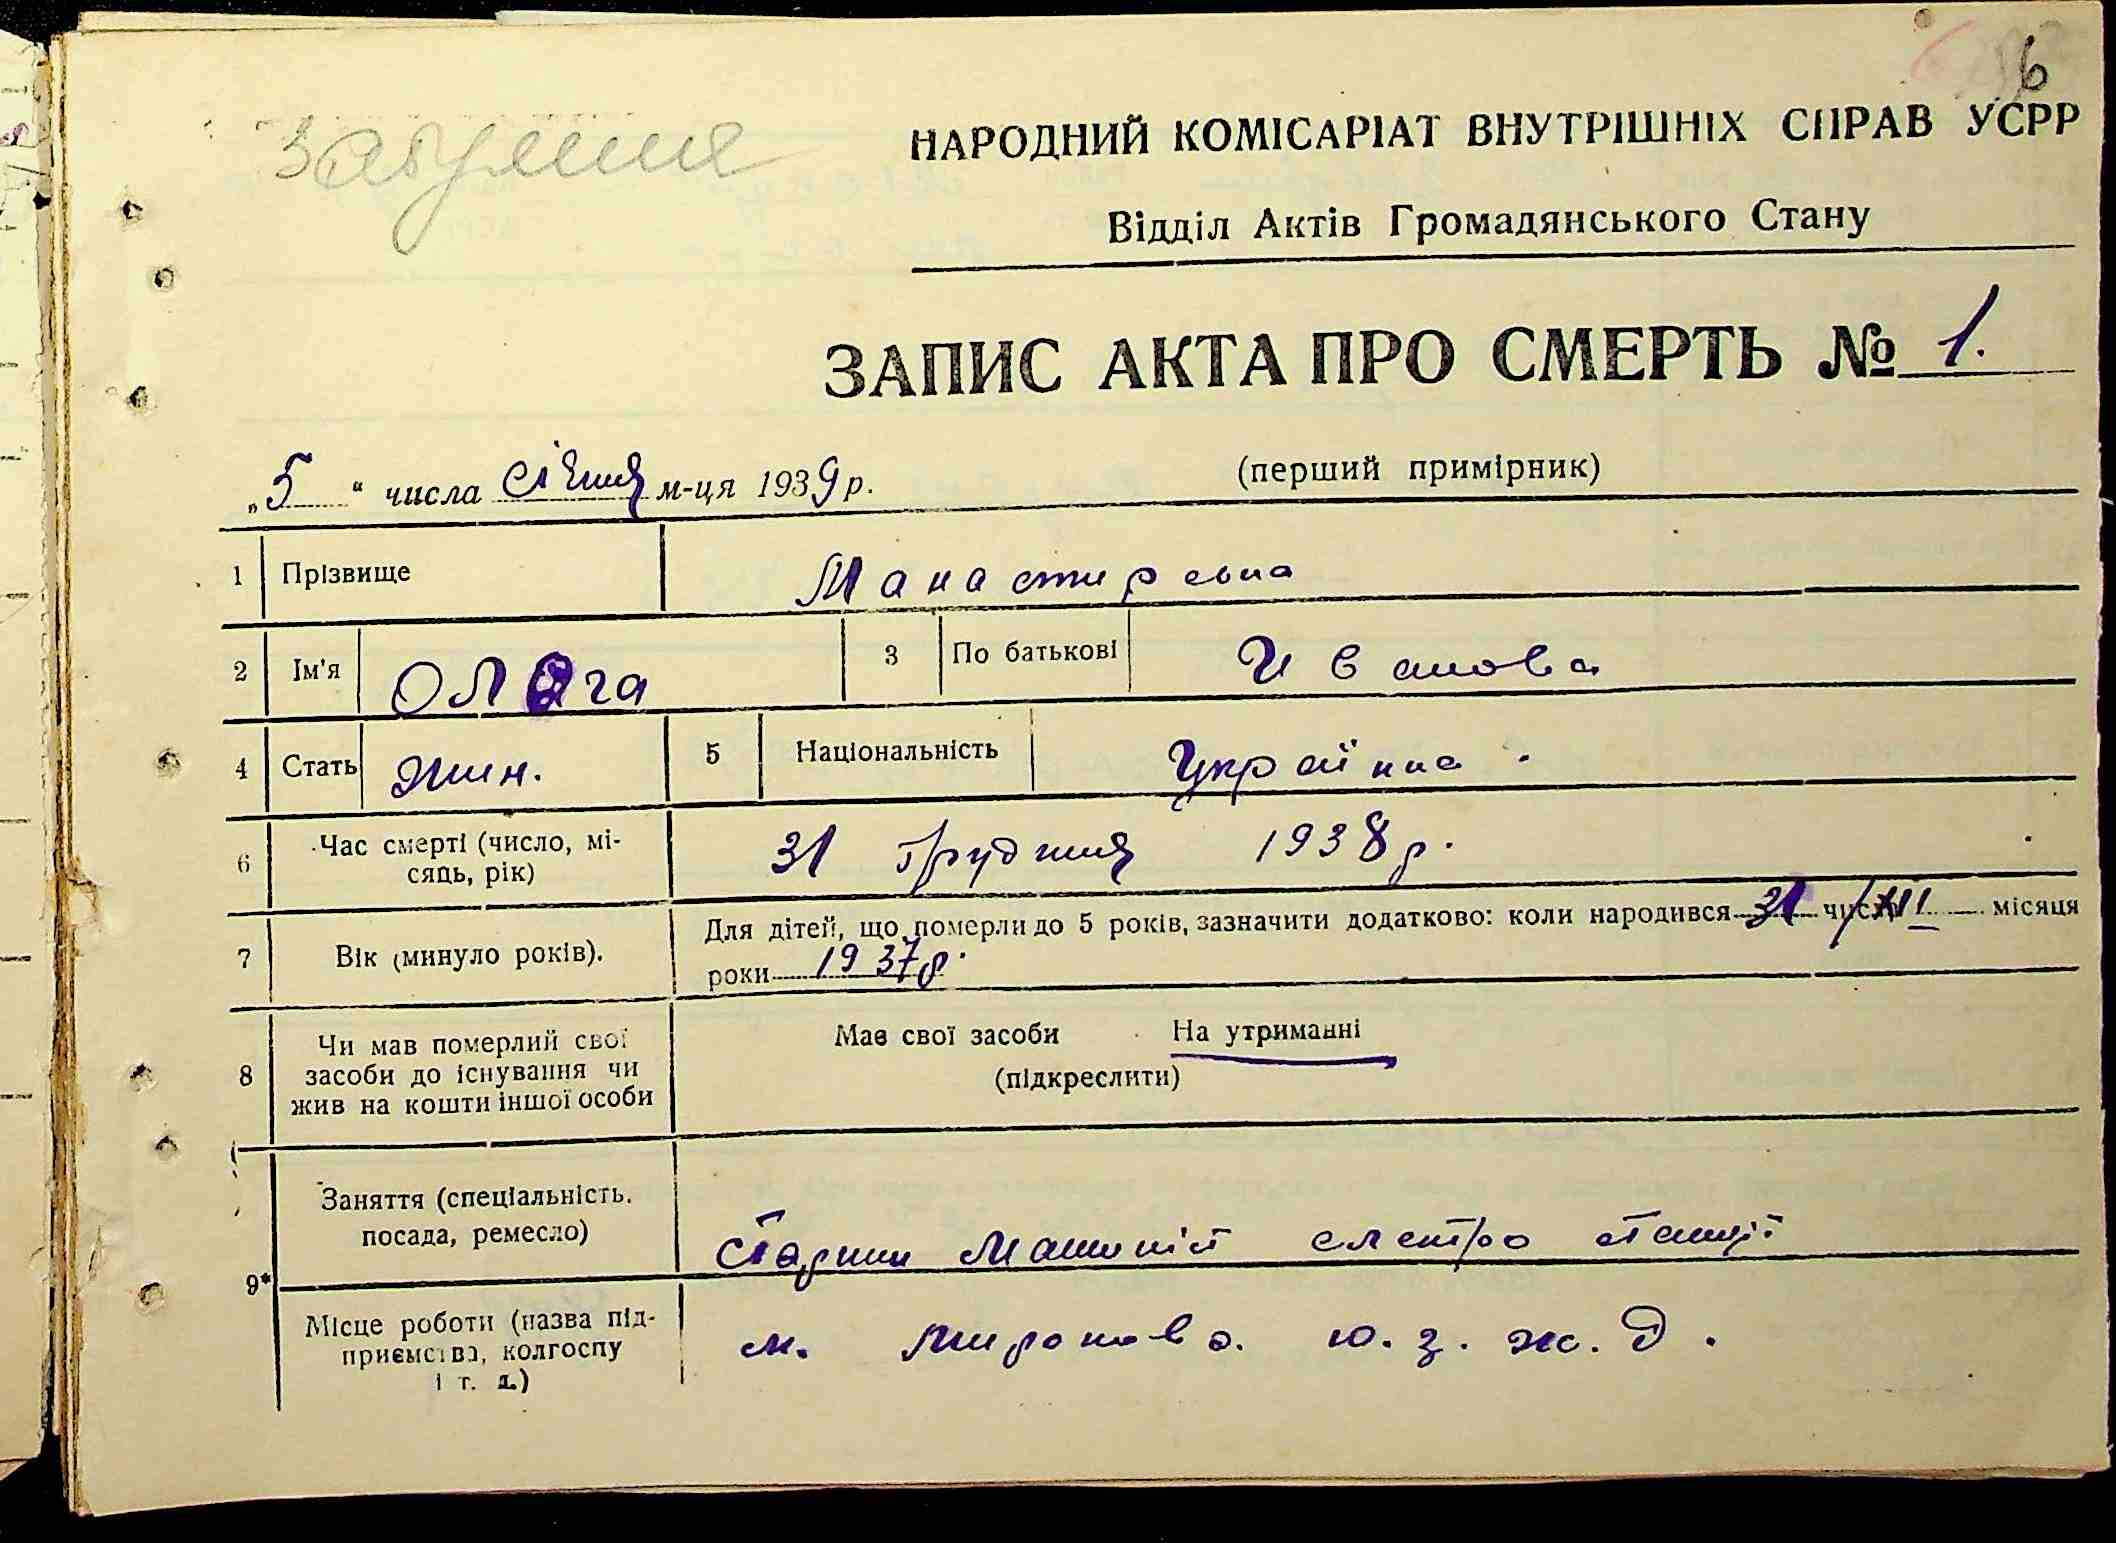 6
НАРОДНИЙ КОМІСАРІАТ ВНУТРІШНІХ СПРАВ УСРР
Відділ Актів Громадянського Стану
ЗАПИС АКТА ПРО СМЕРТЬ № 1.
„5“ числа січня м-ця 1939 р. (перший примірник)
1 Прізвище Манастирська
2 Ім'я Ольга 3 По батькові Иванова
4 Стать жин. 5 Національність Українка.
6 Час смерті (число, мі-
сяць, рік) 31 грудня 1938 р.
7 Вік (минуло років). Для дітей, що померли до 5 років, зазначити додатково: коли народився 31 числа /XII місяця
роки 1937 р.
8 Чи мав померлий свої
засоби до існування чи
жив на кошти іншої особи
Має свої засоби На утриманні
(підкреслити)
9* Заняття (спеціальність.
посада, ремесло) Старши Машиніст електро станції
Місце роботи (назва під-
приємства, колгоспу
і т. д.) м. Миронова. ю. з. ж. д.